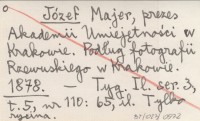 Józef Majer, prezes
Akademii Umiejętności w
Krakowie. Podług fotografii
Rzewuskiego w Krakowie.
1878. — Tyg. Il. ser. 3,
t. 5, nr 110: 65, il. Tylko
rycina.